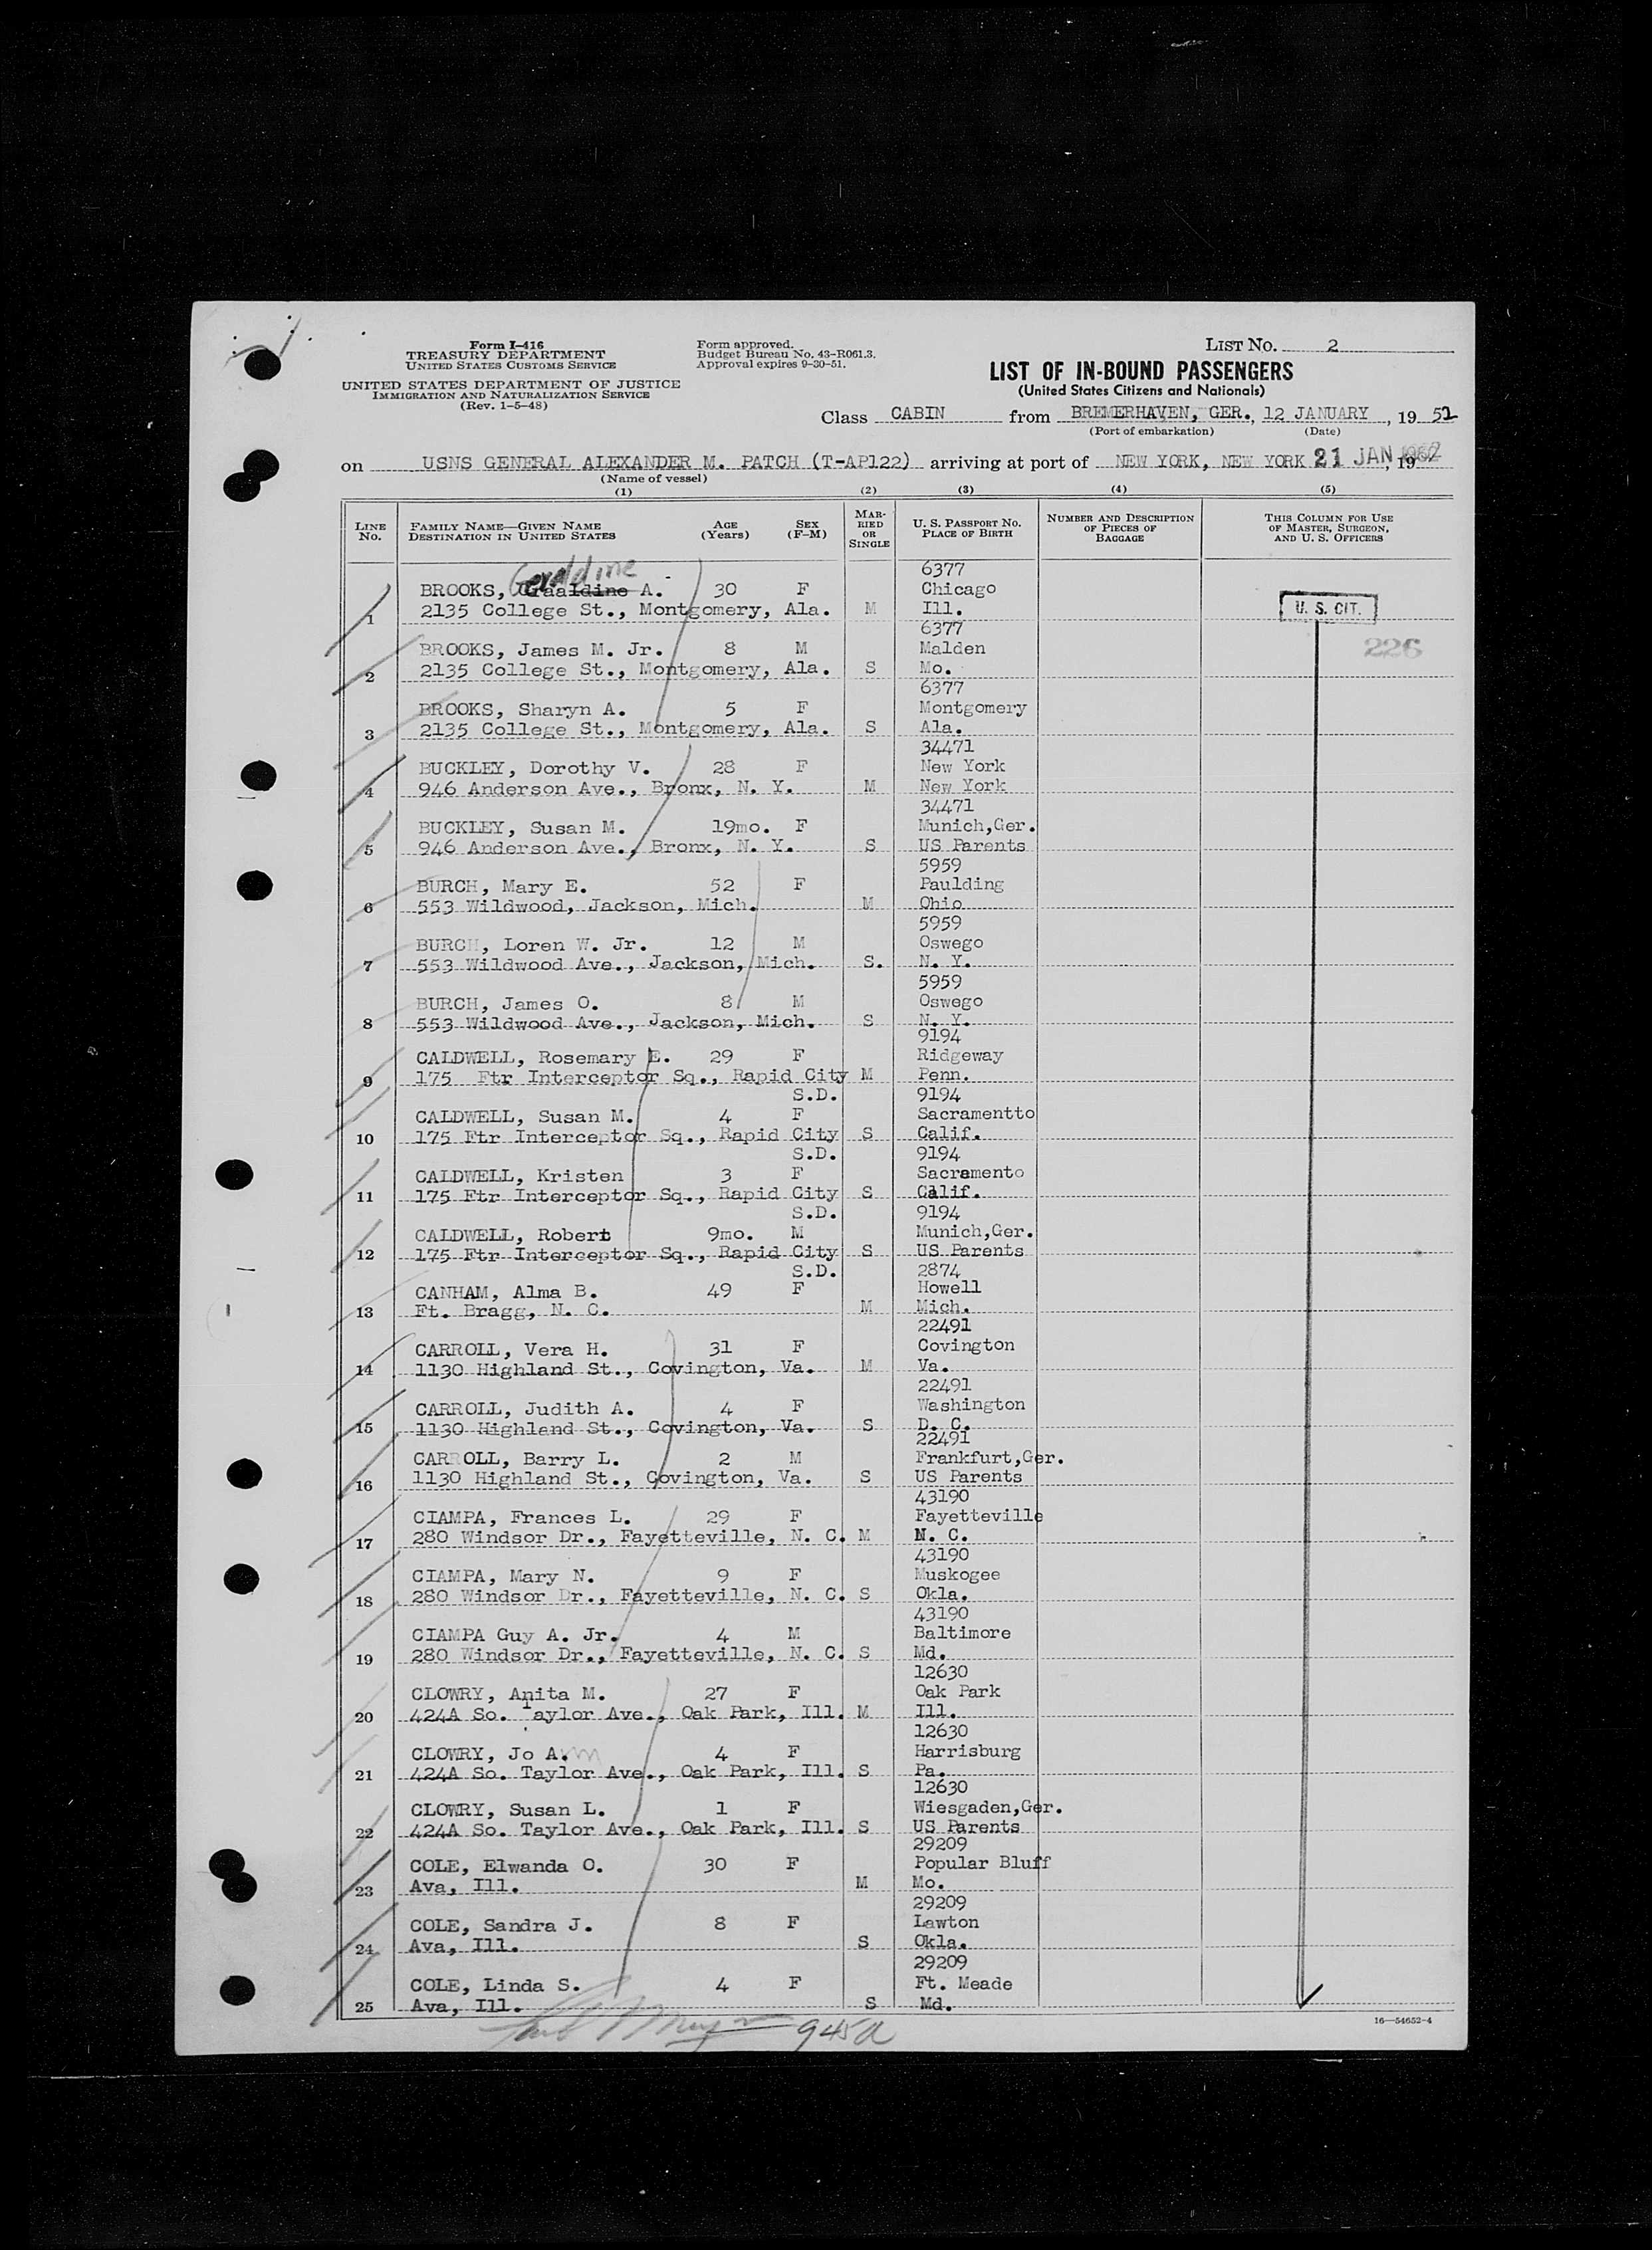 Form I-416
TREASURY DEPARTMENT
UNITED STATES CUSTOMS SERVICE
UNITED STATES DEPARTMENT OF JUSTICE
IMMIGRATION AND NATURALIZATION SERVICE
(Rev. 1-5-48)
Form approved.
Budget Bureau No. 43-R061.3.
Approval expires 9-30-51.
LIST NO. 2
LIST OF IN-BOUND PASSENGERS
(United States Citizens and Nationals)
Class CABIN from BREMERHAVEN, GER., 12 JANUARY, 1952
(Port of embarkation) (Date)
on USNS GENERAL ALEXANDER M. PATCH (T-AP122) arriving at port of NEW YORK, NEW YORK 21 JAN, 1952
(Name of vessel)
(1) (2) (3) (4) (5)
LINE NO. FAMILY NAME—GIVEN NAME DESTINATION IN UNITED STATES AGE (Years) SEX (F-M) MARRIED OR SINGLE U. S. PASSPORT NO. PLACE OF BIRTH NUMBER AND DESCRIPTION OF PIECES OF BAGGAGE THIS COLUMN FOR USE OF MASTER, SURGEON, AND U. S. OFFICERS
Geraldine 6377
BROOKS, A. 30 F Chicago
1 2135 College St., Montgomery, Ala. M Ill. U. S. CIT.
6377
BROOKS, James M. Jr. 8 M Malden 226
2 2135 College St., Montgomery, Ala. S Mo.
6377
BROOKS, Sharyn A. 5 F Montgomery
3 2135 College St., Montgomery, Ala. S Ala.
34471
BUCKLEY, Dorothy V. 28 F New York
4 946 Anderson Ave., Bronx, N. Y. M New York
34471
BUCKLEY, Susan M. 19mo. F Munich,Ger.
5 946 Anderson Ave., Bronx, N. Y. S US Parents
5959
BURCH, Mary E. 52 F Paulding
6 553 Wildwood, Jackson, Mich. M Ohio
5959
BURCH, Loren W. Jr. 12 M Oswego
7 553 Wildwood Ave., Jackson, Mich. S. N. Y.
5959
BURCH, James O. 8 M Oswego
8 553 Wildwood Ave., Jackson, Mich. S N. Y.
9194
CALDWELL, Rosemary E. 29 F Ridgeway
9 175 Ftr Interceptor Sq., Rapid City M Penn.
S.D. 9194
CALDWELL, Susan M. 4 F Sacramentto
10 175 Ftr Interceptor Sq., Rapid City S Calif.
S.D. 9194
CALDWELL, Kristen 3 F Sacramento
11 175 Ftr Interceptor Sq., Rapid City S Calif.
S.D. 9194
CALDWELL, Robert 9mo. M Munich,Ger.
12 175 Ftr Interceptor Sq., Rapid City S US Parents
S.D. 2874
CANHAM, Alma B. 49 F Howell
13 Ft. Bragg, N. C. M Mich.
22491
CARROLL, Vera H. 31 F Covington
14 1130 Highland St., Covington, Va. M Va.
22491
CARROLL, Judith A. 4 F Washington
15 1130 Highland St., Covington, Va. S D. C.
22491
CARROLL, Barry L. 2 M Frankfurt,Ger.
16 1130 Highland St., Covington, Va. S US Parents
43190
CIAMPA, Frances L. 29 F Fayetteville
17 280 Windsor Dr., Fayetteville, N. C. M N. C.
43190
CIAMPA, Mary N. 9 F Muskogee
18 280 Windsor Dr., Fayetteville, N. C. S Okla.
43190
CIAMPA Guy A. Jr. 4 M Baltimore
19 280 Windsor Dr., Fayetteville, N. C. S Md.
12630
CLOWRY, Anita M. 27 F Oak Park
20 424A So. Taylor Ave., Oak Park, Ill. M Ill.
12630
CLOWRY, Jo A. 4 F Harrisburg
21 424A So. Taylor Ave., Oak Park, Ill. S Pa.
12630
CLOWRY, Susan L. 1 F Wiesgaden,Ger.
22 424A So. Taylor Ave., Oak Park, Ill. S US Parents
29209
COLE, Elwanda O. 30 F Popular Bluff
23 Ava, Ill. M Mo.
29209
COLE, Sandra J. 8 F Lawton
24 Ava, Ill. S Okla.
29209
COLE, Linda S. 4 F Ft. Meade
25 Ava, Ill. S Md.
945a
16—54652-4